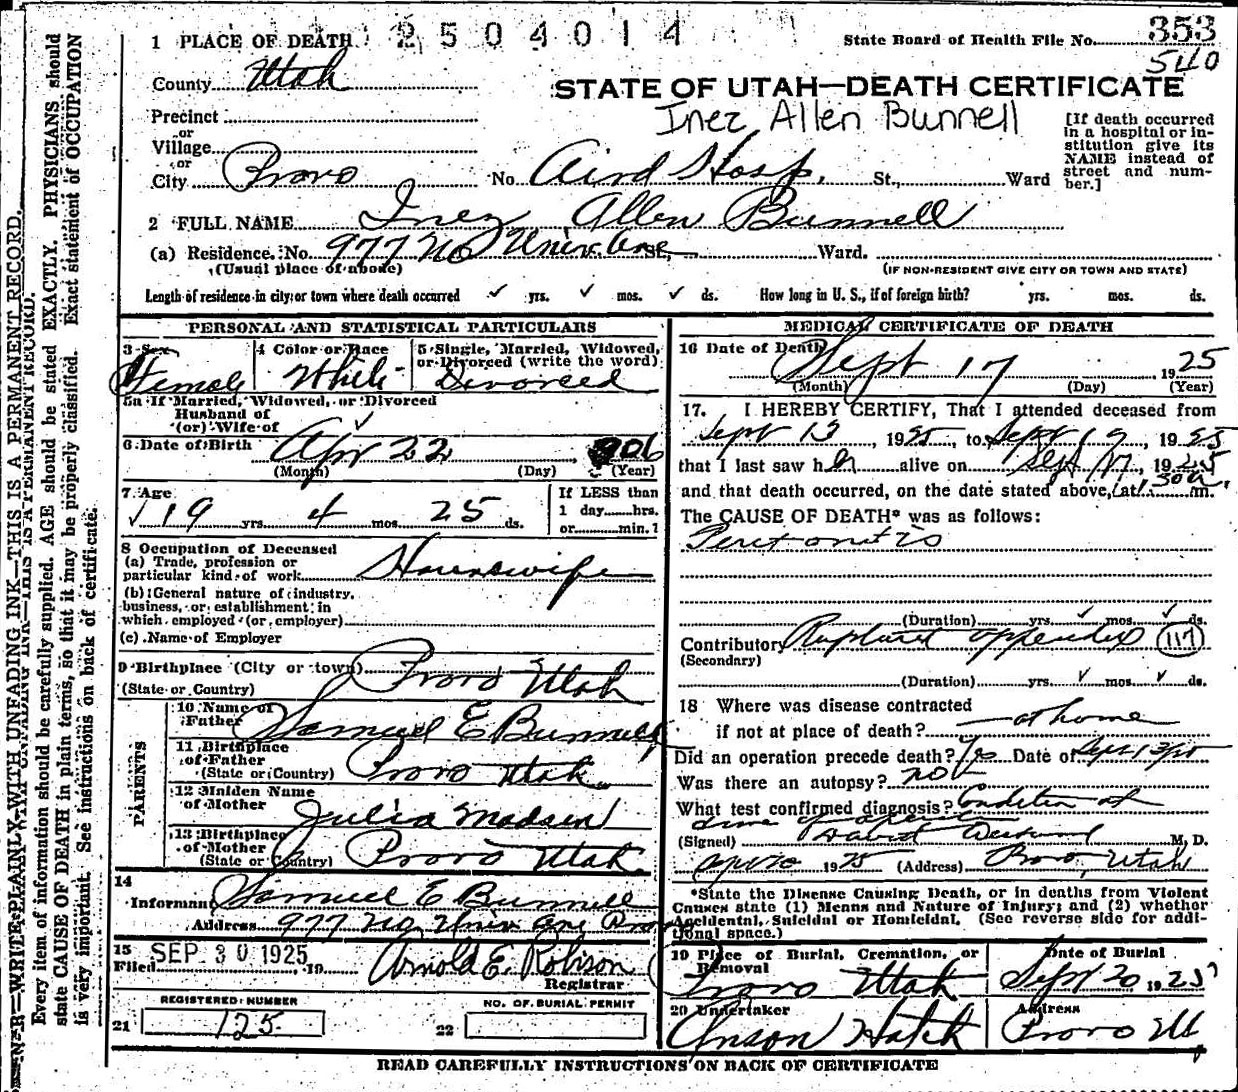 2504014
State Board of Health File No. 353
540
1 PLACE OF DEATH
County Utah
STATE OF UTAH—DEATH CERTIFICATE
Inez Allen Bunnell
Precinct
or
Village
or
City Provo No. Aird Hosp. St., Ward
[If death occurred
in a hospital or in-
stitution give its
NAME instead of
street and num-
ber.]
2 FULL NAME Inez Allen Bunnell
(a) Residence. No. 977 No Univ. Ave St., Ward.
(Usual place of abode) (IF NON-RESIDENT GIVE CITY OR TOWN AND STATE)
Length of residence in city or town where death occurred ✓ yrs. ✓ mos. ✓ ds. How long in U. S., if of foreign birth? yrs. mos. ds.
PERSONAL AND STATISTICAL PARTICULARS
3 Sex
Female
4 Color or Race
White
5 Single, Married, Widowed,
or Divorced (write the word)
Divorced
5a If Married, Widowed, or Divorced
Husband of
(or) Wife of
6 Date of Birth Apr 22 906
(Month) (Day) (Year)
7 Age
19 yrs. 4 mos. 25 ds.
If LESS than
1 day hrs.
or min. ?
8 Occupation of Deceased
(a) Trade, profession or
particular kind of work Housewife
(b) General nature of industry,
business, or establishment in
which employed (or employer)
(c) Name of Employer
9 Birthplace (City or town) Provo Utah
(State or Country)
PARENTS
10 Name of
Father Samuel E Bunnell
11 Birthplace
of Father
(State or Country) Provo Utah
12 Maiden Name
of Mother Julia Madsen
13 Birthplace
of Mother
(State or Country) Provo Utah
14
Informant Samuel E Bunnell
Address 977 No. Univ Ave Provo
15 SEP 30 1925
Filed 19 Arnold E. Robison
Registrar
REGISTERED NUMBER
21 125
NO. OF BURIAL PERMIT
22
MEDICAL CERTIFICATE OF DEATH
16 Date of Death
Sept 17 1925
(Month) (Day) (Year)
17. I HEREBY CERTIFY, That I attended deceased from
Sept 13, 1925, to Sept 1, 1925
that I last saw her alive on Sept 17, 1925
and that death occurred, on the date stated above, at 1:30 a. m.
The CAUSE OF DEATH* was as follows:
Peritonitis
(Duration) yrs. ✓ mos. ✓ ds.
Contributory Ruptured appendix 117
(Secondary)
(Duration) yrs. ✓ mos. ✓ ds.
18 Where was disease contracted
if not at place of death? at home
Did an operation precede death? Yes Date of Sept 13
Was there an autopsy? no
What test confirmed diagnosis? Condition at
time of
(Signed) David M. D.
1925 (Address) Provo, Utah
*State the Disease Causing Death, or in deaths from Violent
Causes state (1) Means and Nature of Injury; and (2) whether
Accidental, Suicidal or Homicidal. (See reverse side for addi-
tional space.)
19 Place of Burial, Cremation, or
Removal
Provo Utah
Date of Burial
Sept 20 1925
20 Undertaker
Anson Hatch
Address
Provo Ut
READ CAREFULLY INSTRUCTIONS ON BACK OF CERTIFICATE
N. B.—WRITE PLAINLY WITH UNFADING INK—THIS IS A PERMANENT RECORD.
Every item of information should be carefully supplied. AGE should be stated EXACTLY. PHYSICIANS should
state CAUSE OF DEATH in plain terms, so that it may be properly classified. Exact statement of OCCUPATION
is very important. See instructions on back of certificate.